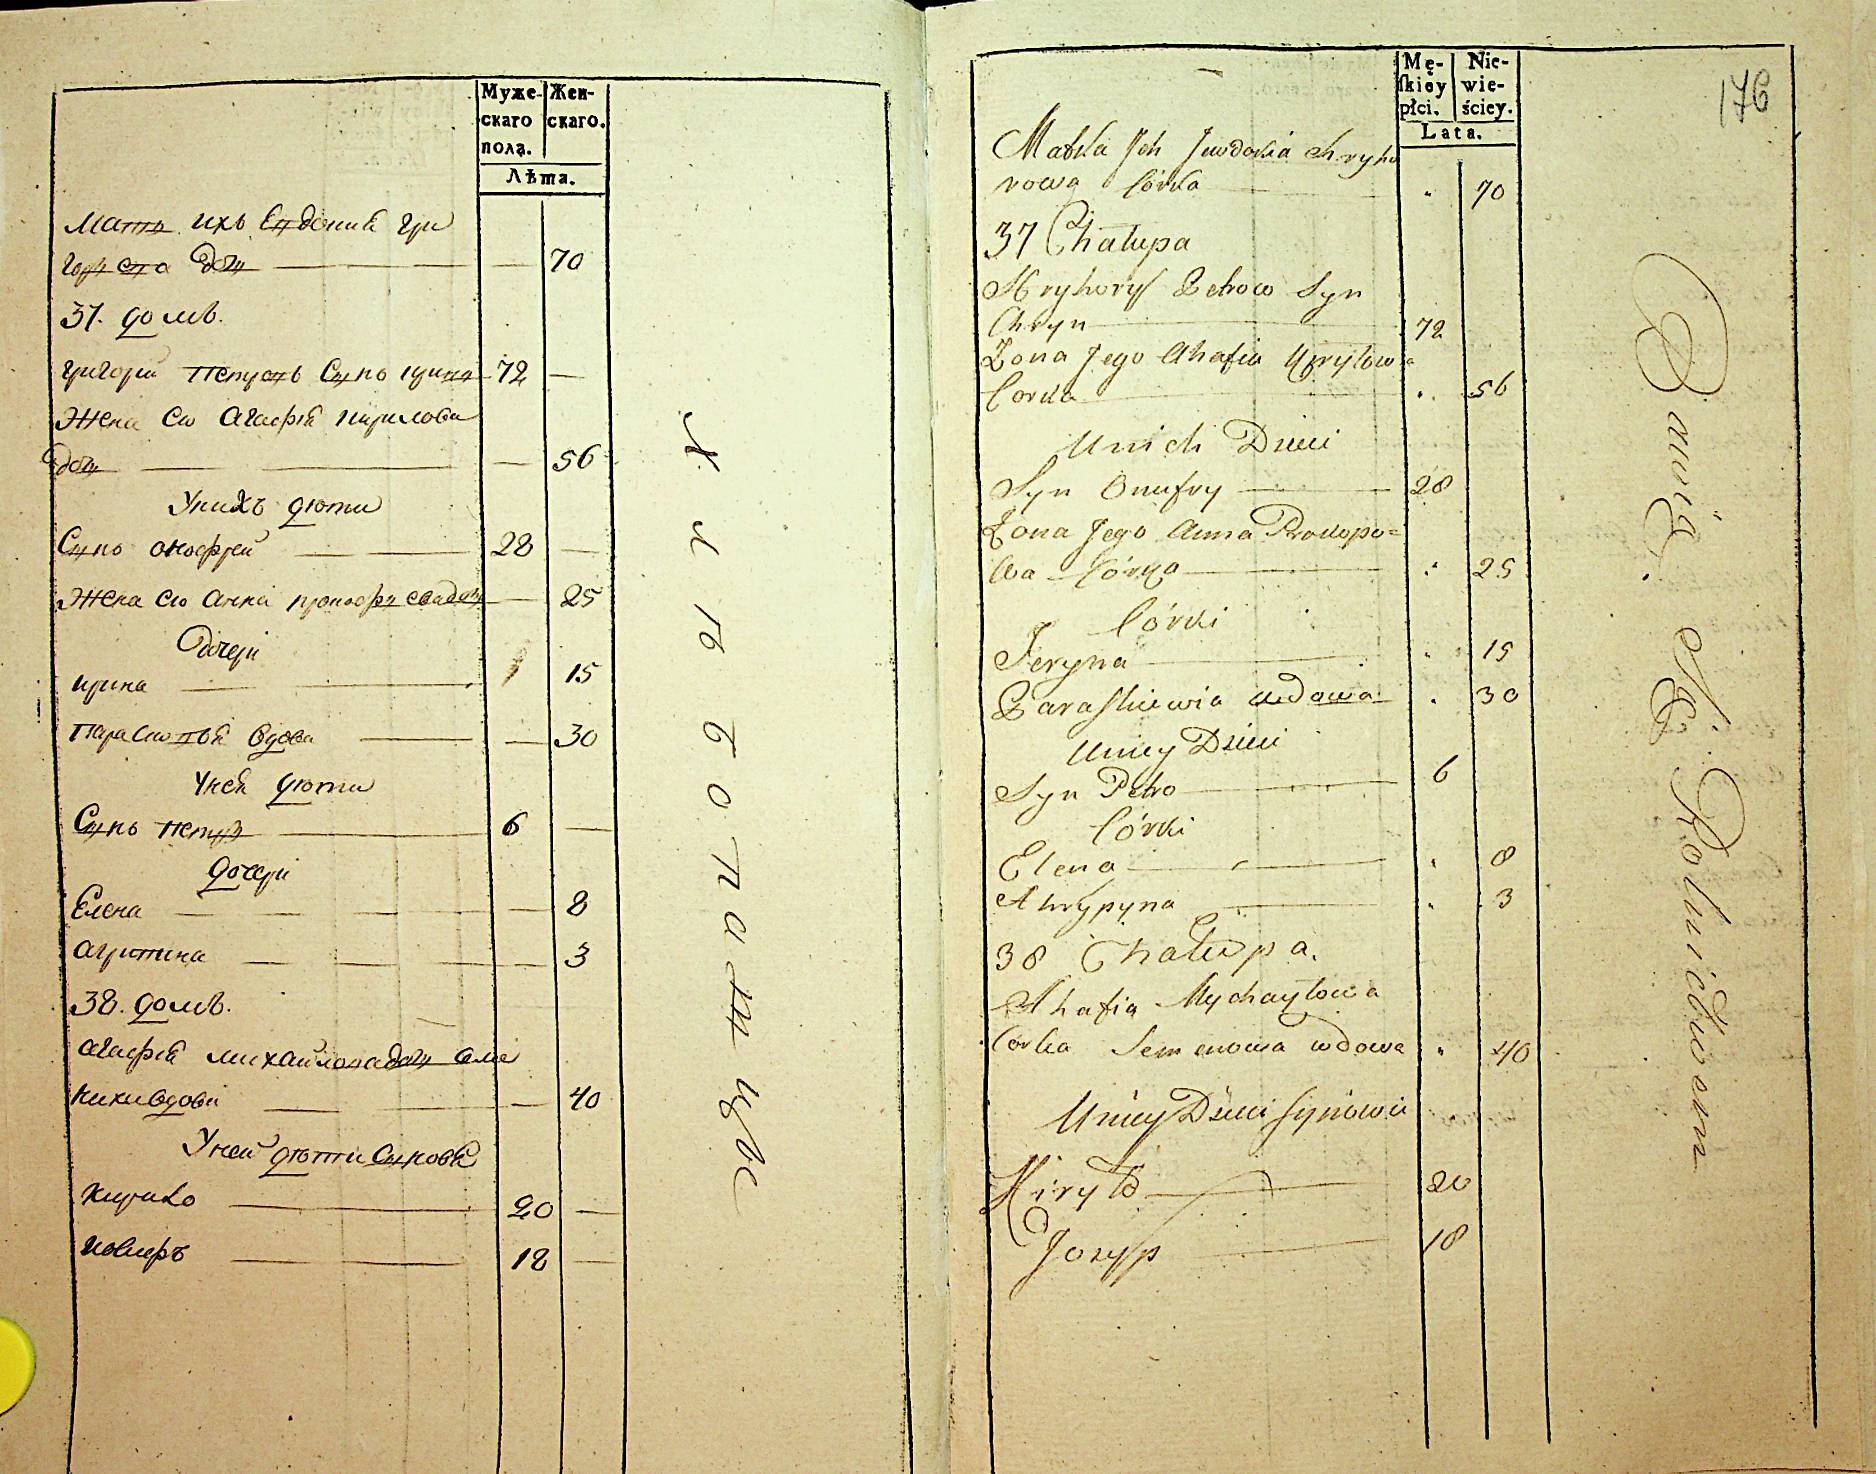 Муже-
скаго
пола.
Жен-
скаго.
Лѣта.
Мать ихъ Евдокия Гри
горьева дочь 70
37. домъ.
Григорий Петровъ Сынъ Гринь 72
Жена его Агафия Кирилова
дочь 56
У нихъ дѣти
Сынъ Онофрей 28
Жена его Анна 25
Дочери
Ирина 15
Парасковья вдова 30
У ней дѣти
Сынъ Петръ 6
дочери
Елена 8
Агрипина 3
38. домъ.
Агафия Михайлова дочь Семе
ниха вдова 40
У ней дѣти Сыновья
Кирило 20
Иосифъ 18
Хлѣбопашцы
Mę-
skiey
płci.
Nie-
wie-
ściey.
Lata.
176
Matka Jch Jewdokia Hryho
rowa Córka " 70
37 Chałupa
Hryhory Petrow Syn
Hryn 72
Żona Jego Ahafia Kyryłowa
Corka " 56
U nich Dzieci
Syn Onufry 28
Żona Jego Anna Prokopo=
wa Córka " 25
Córki
Jeryna " 15
Paraskiewia wdowa " 30
U niey Dzieci
Syn Petro 6
Córki
Elena " 8
Ahrypyna " 3
38 Chałupa.
Ahafia Mychayłowa
Corka Semenowa wdowa " 40
U niey Dzieci Synowie
Kiryło 20
Jozyp 18
Bawią Się Rolnictwem